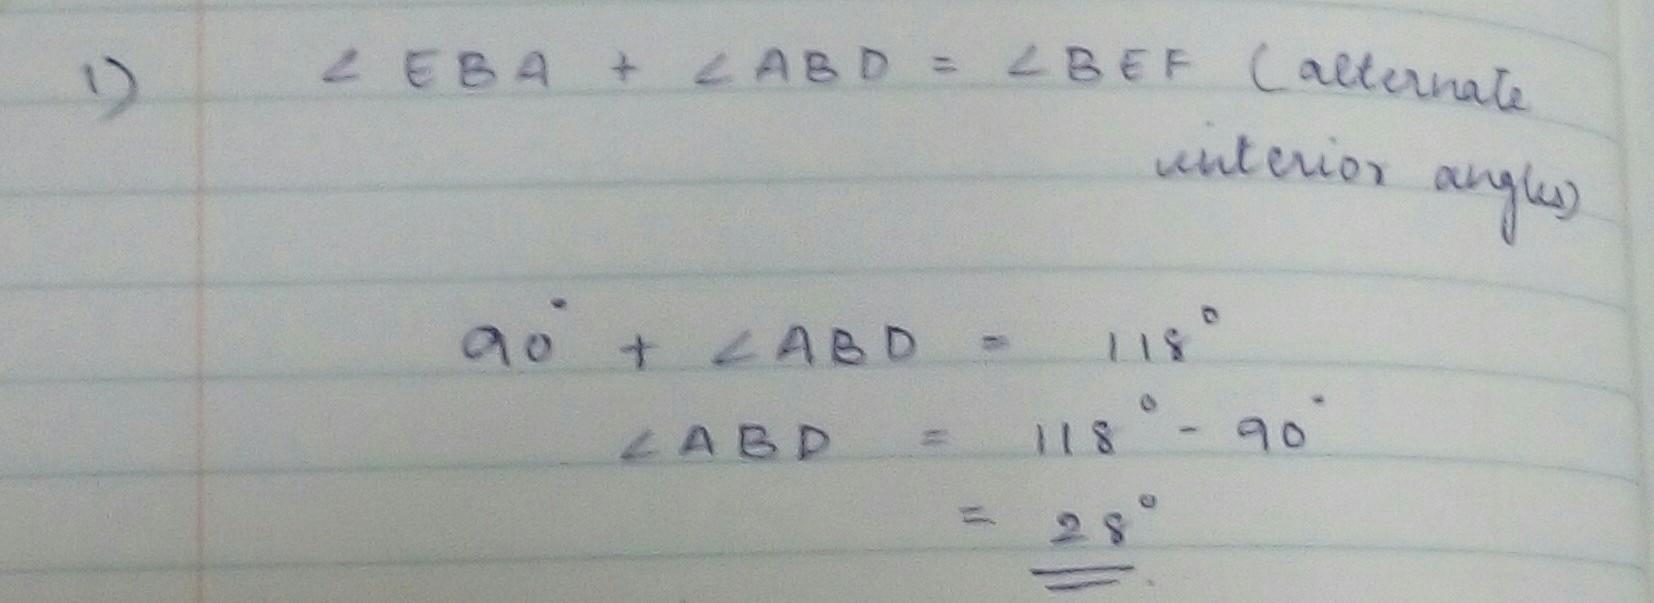 1) ∠EBA + ∠ABD = ∠BEF (alternate
interior angles)
90° + ∠ABD = 118°
∠ABD = 118° - 90°
= 28°